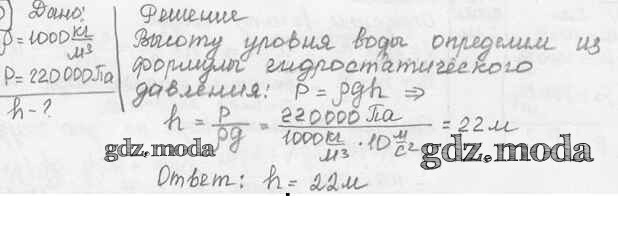 Дано:
ρ = 1000 кг/м³
P = 220000 Па
h - ?
Решение
Высоту уровня воды определим из
формулы гидростатического
давления: P = ρgh ⇒
h = P/ρg = 220000 Па / 1000 кг/м³ · 10 м/с² = 22 м
gdz.moda
gdz.moda
Ответ: h = 22 м